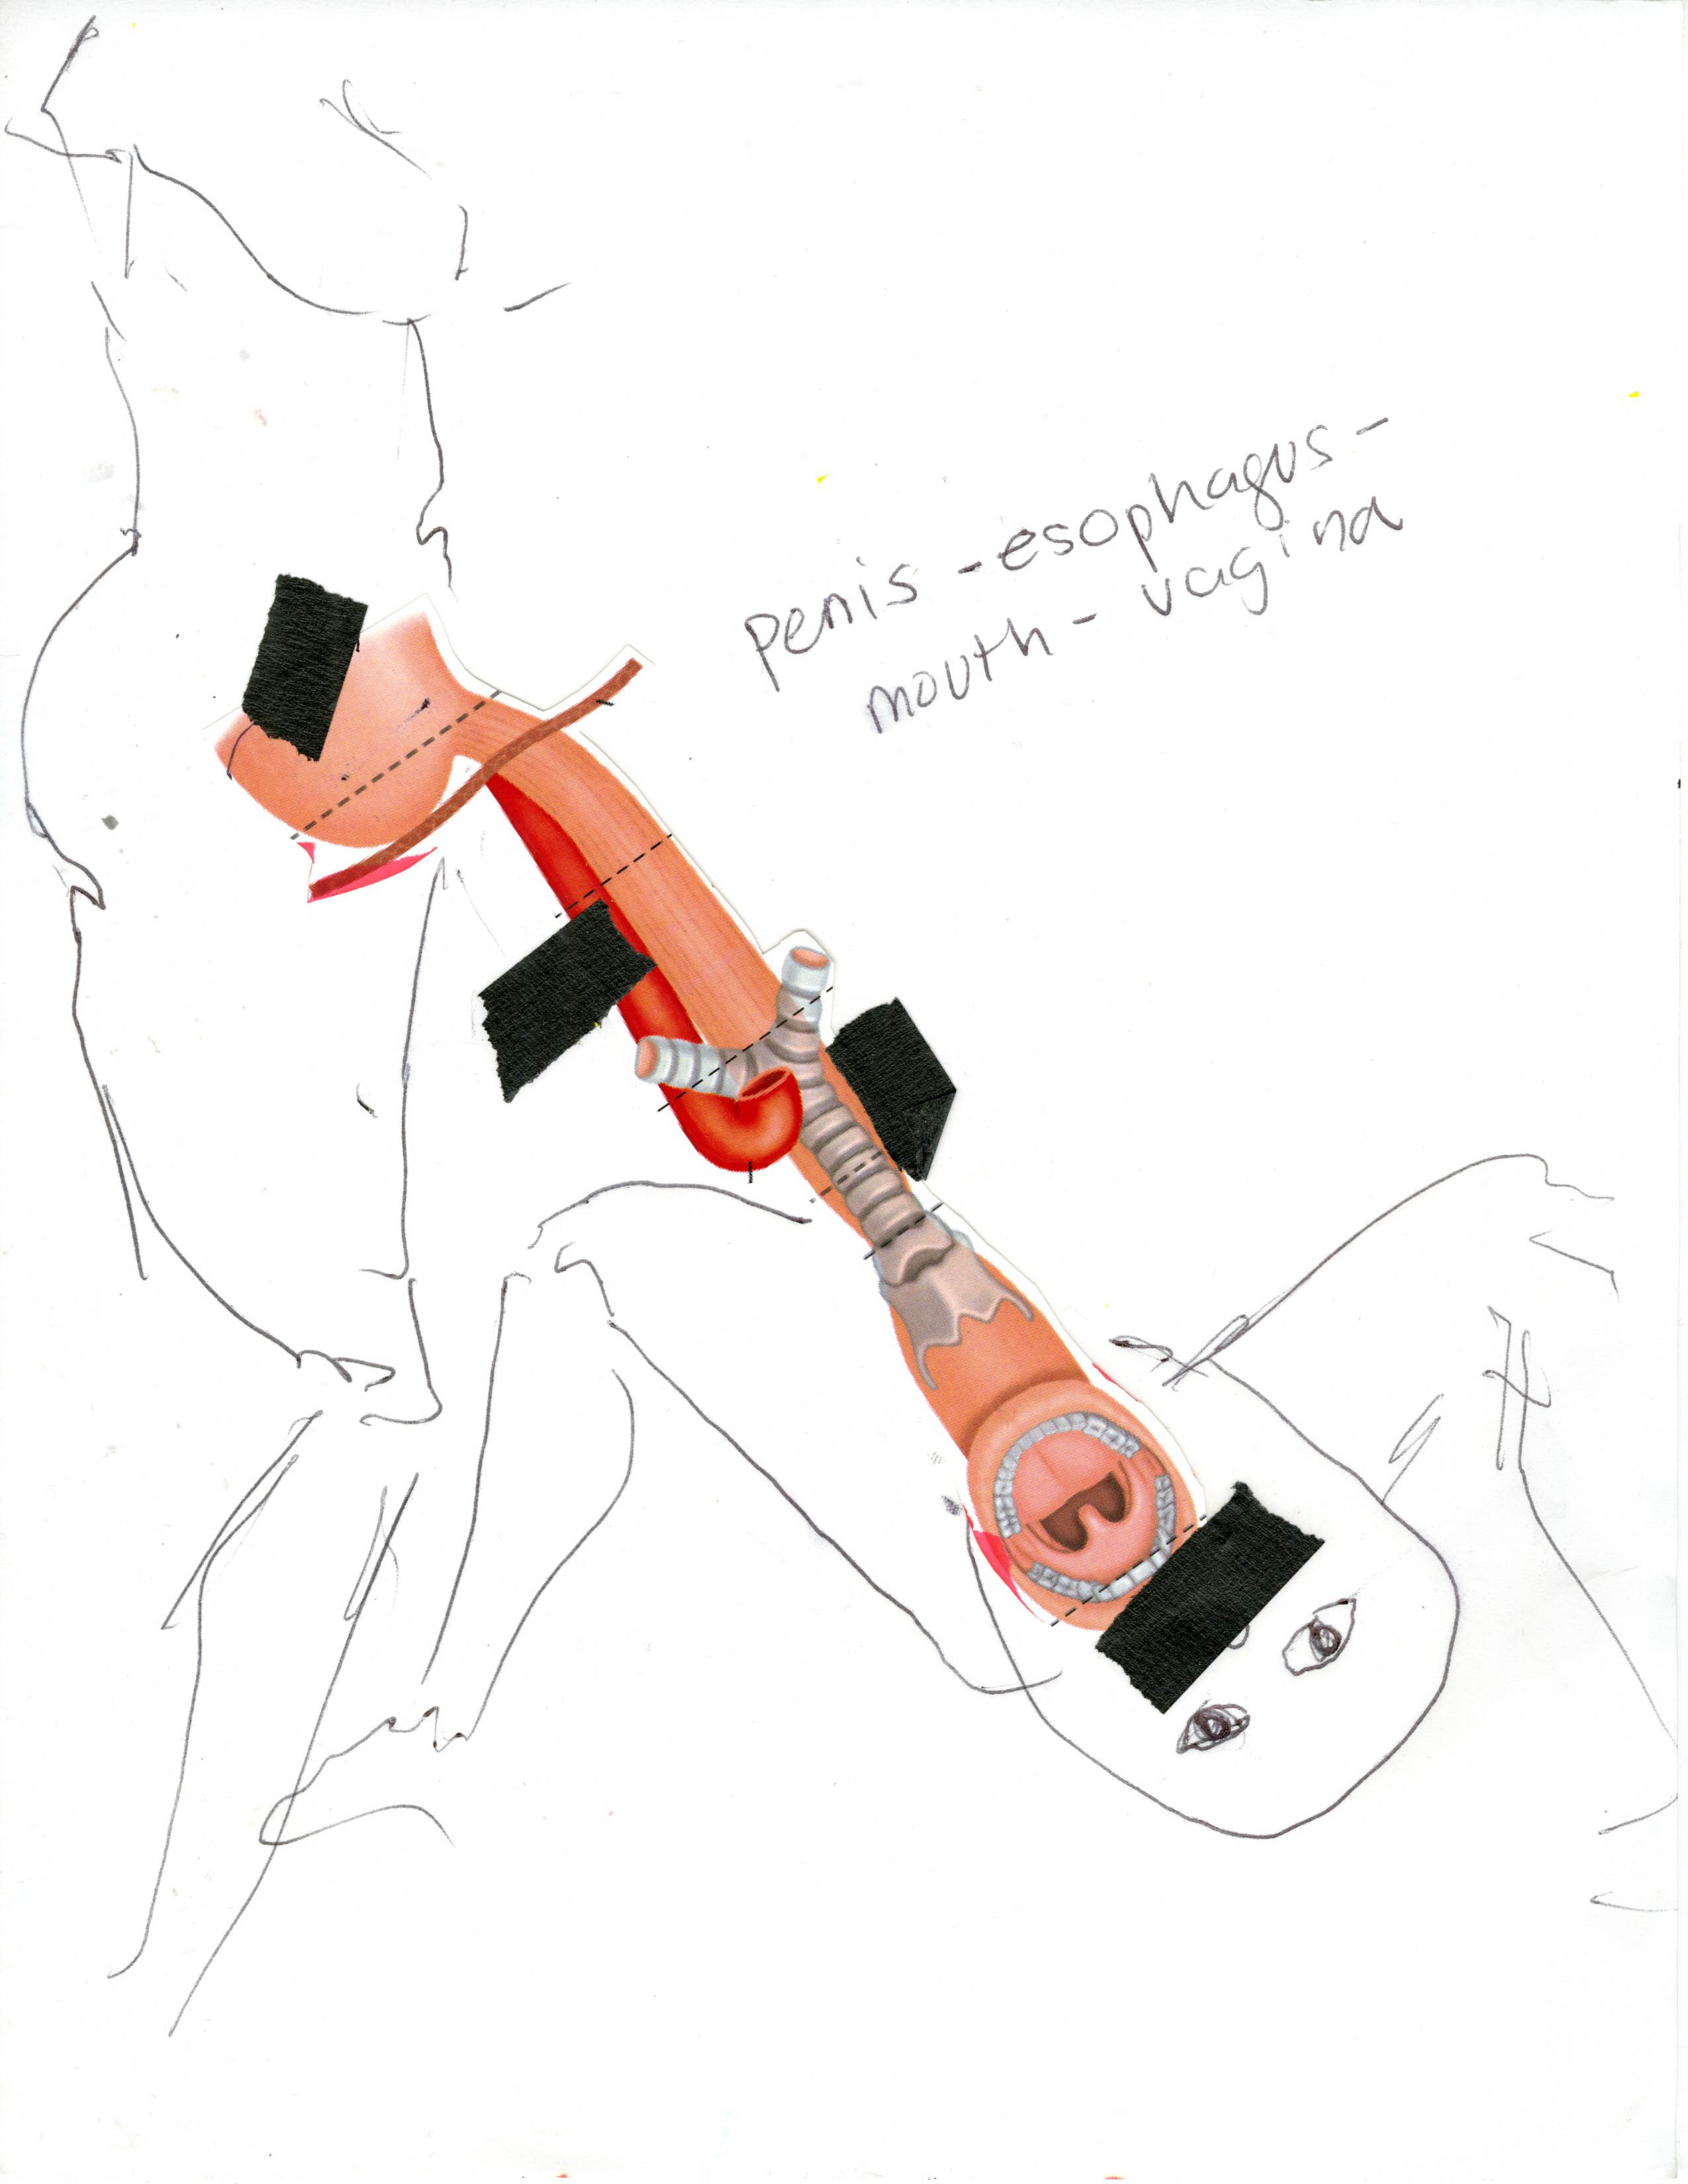 penis - esophagus -
mouth - vagina